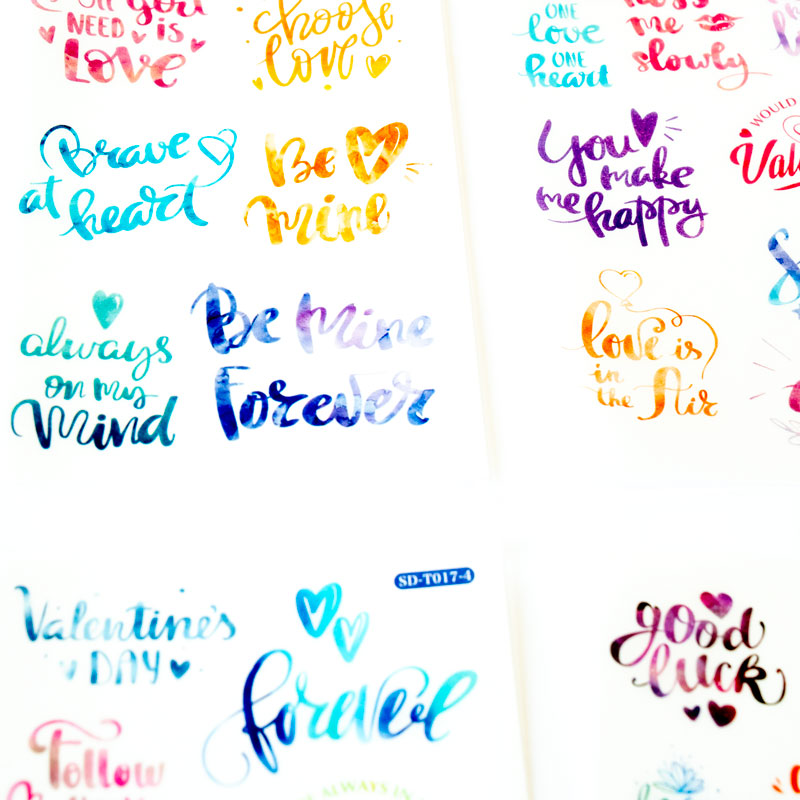 you
NEED is
Love
choose
love
ONE
love
ONE
heart
kiss
me
slowly
Brave
at heart
Be
Mine
You
make
me happy
WOULD
always
on my
Mind
Be Mine
Forever
love is
in
the Air
SD-T017-4
Valentine's
DAY
forever
good
luck
Follow
ALWAYS IN